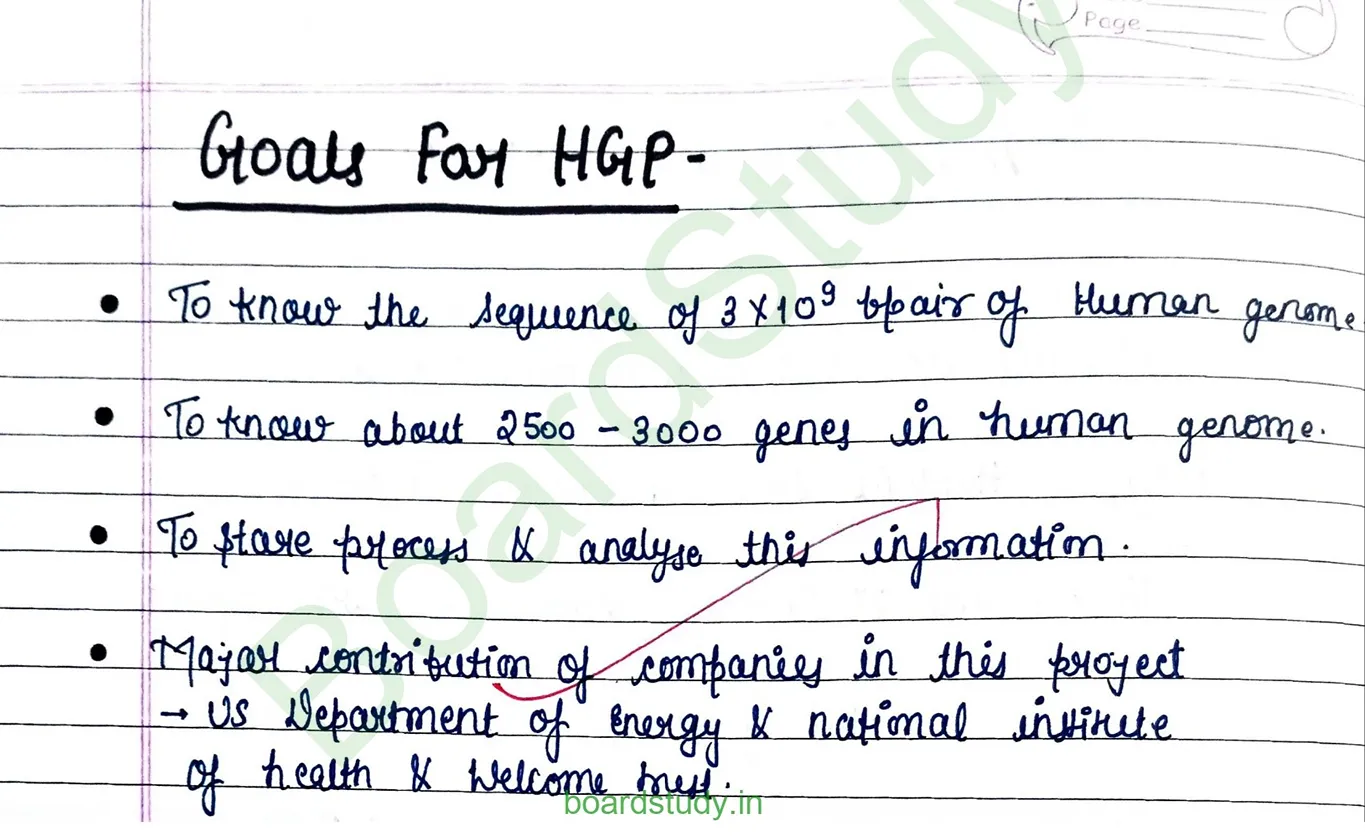 Page
Goals For HGP-
• To know the sequence of 3×10⁹ bpair of Human genome
• To know about 2500 - 3000 genes in human genome.
• To store process & analyse this information.
• Major contribution of companies in this project
→ US Department of Energy & national institute
of health & Welcome
BoardStudy
boardstudy.in